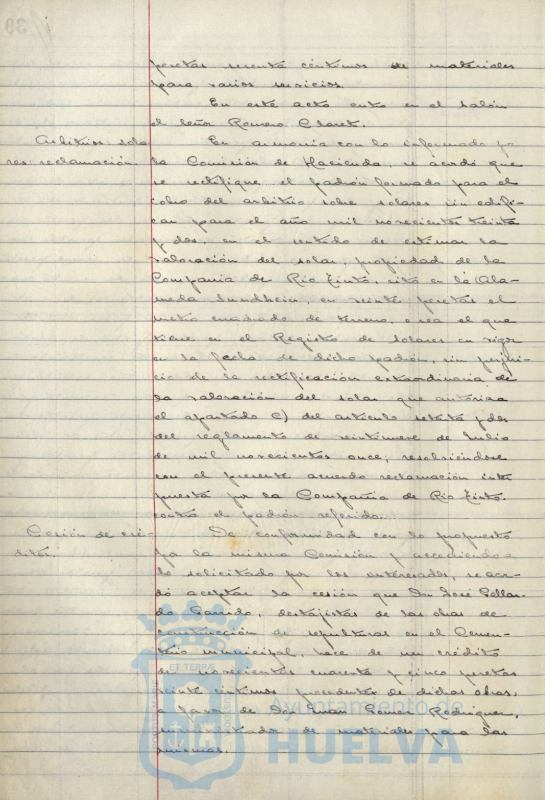 pesetas sesenta céntimos de materiales
para varios servicios.
En este acto entra en el salón
el Señor Romero Claret.
Arbitrios sola
res: reclamación.
En armonía con lo informado por
la Comisión de Hacienda, se acordó que
se rectifique el padrón formado para el
cobro del arbitrio sobre solares sin edifi-
car para el año mil novecientos treinta
y dos, en el sentido de estimar la
valoración del solar, propiedad de la
Compañía de Río Tinto, sito en la Ala-
meda Sundheim, en veinte pesetas el
metro cuadrado de terreno, o sea el que
tiene en el Registro de solares en vigor
en la fecha de dicho padrón, sin perjui-
cio de la rectificación extraordinaria de
la valoración del solar que autoriza
el apartado C) del artículo setenta y dos
del reglamento de veintinueve de Julio
de mil novecientos once; resolviéndose
con el presente acuerdo reclamación inter
puesta por la Compañía de Río Tinto
contra el padrón referido.
Cesión de cré-
ditos.
De conformidad con lo propuesto
por la misma Comisión y accediendo a
lo solicitado por los interesados, se acor-
dó aceptar la cesión que Don José Gallar-
do Garrido, destajista de las obras de
construcción de sepulturas en el Cemen-
terio municipal, hace de un crédito
de novecientas cuarenta y cinco pesetas
veinte céntimos procedentes de dichas obras,
a favor de Don Juan Gómez Rodríguez,
suministrador de materiales para las
mismas.
ET TERRÆ
Ayuntamiento de
HUELVA